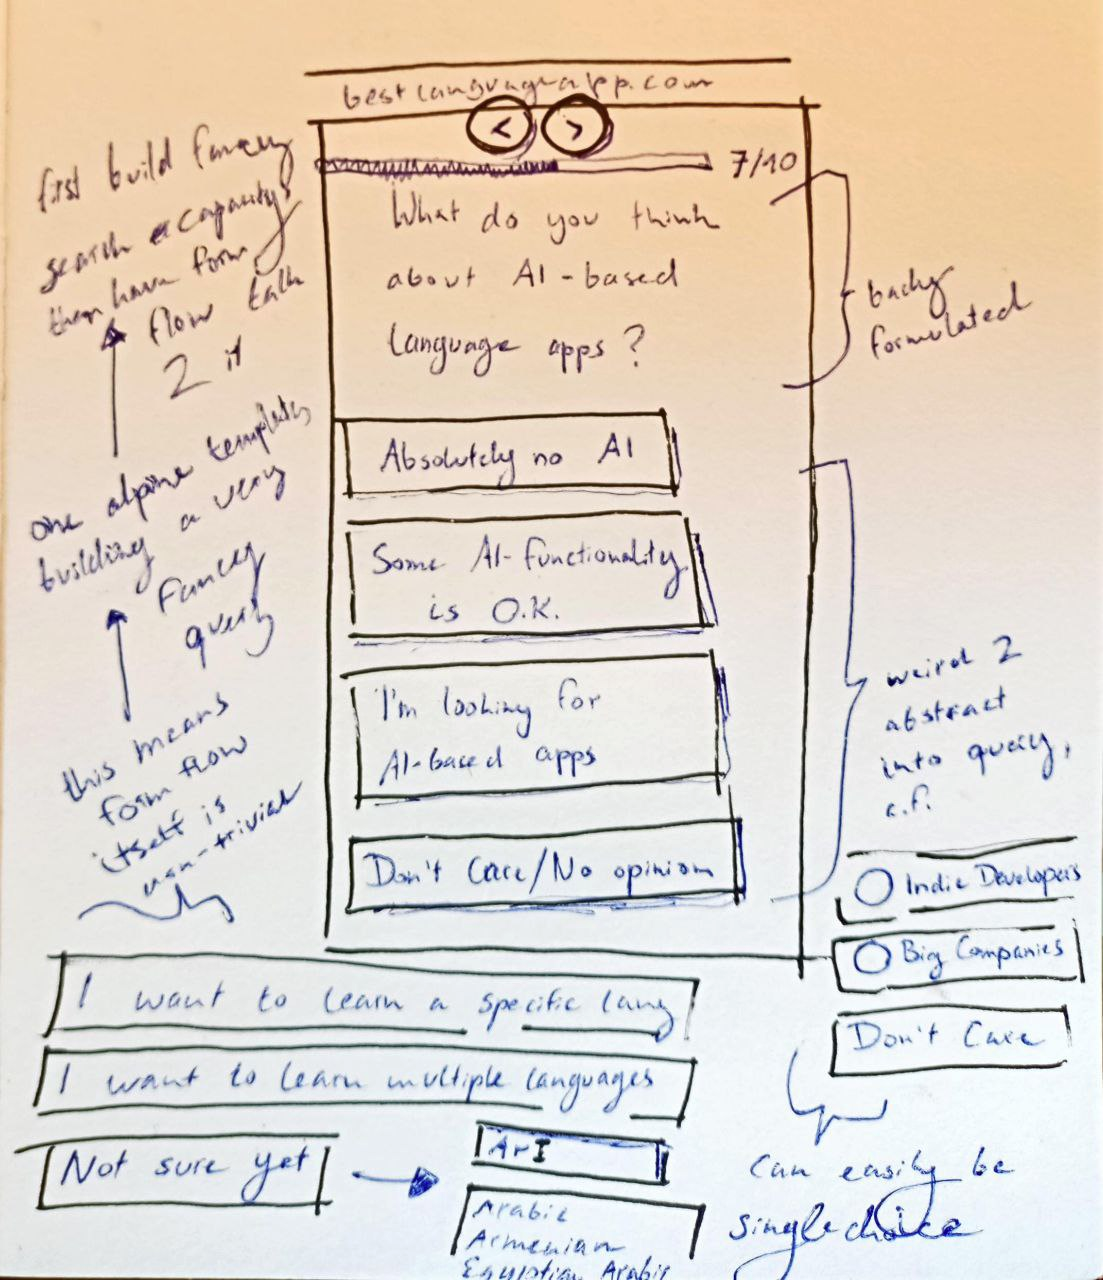 bestlanguageapp.com
< >
7/10
What do you think
about AI-based
language apps?
Absolutely no AI
Some AI-functionality
is O.K.
I'm looking for
AI-based apps
Don't Care/No opinion
first build fancy
search capacity,
then have form
flow talk
2 it
one alpine template
building a very
fancy
query
this means
form flow
itself is
non-trivial
badly
formulated
weird 2
abstract
into query,
c.f.
Indie Developers
Big Companies
Don't Care
can easily be
singlechoice
I want to learn a specific lang
I want to learn multiple languages
Not sure yet
Ar
Arabic
Armenian
Egyptian Arabic